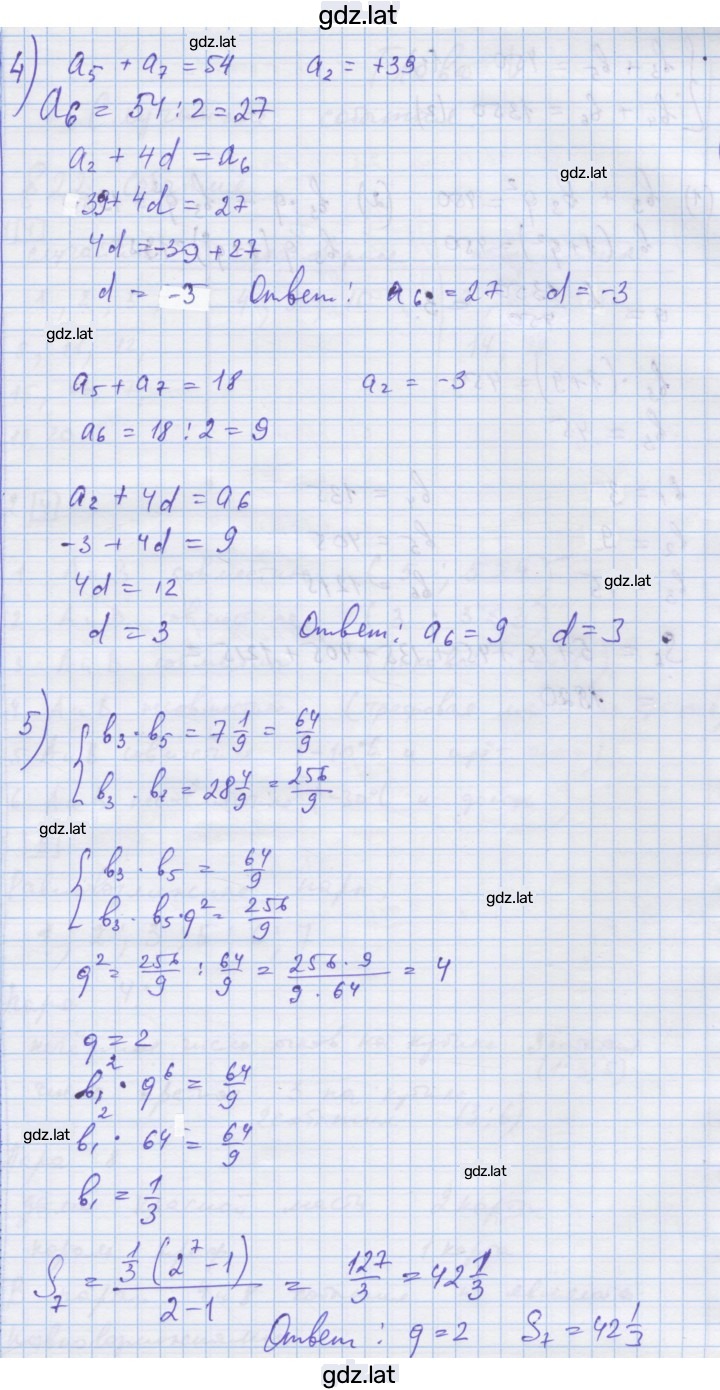 gdz.lat
gdz.lat
4) a₅ + a₇ = 54 a₂ = +39
a₆ = 54 : 2 = 27
a₂ + 4d = a₆
gdz.lat
39 + 4d = 27
4d = -39 + 27
d = -3 Ответ: a₆ = 27 d = -3
gdz.lat
a₅ + a₇ = 18 a₂ = -3
a₆ = 18 : 2 = 9
a₂ + 4d = a₆
-3 + 4d = 9
4d = 12 gdz.lat
d = 3 Ответ: a₆ = 9 d = 3
5) { b₃ · b₅ = 7 1/9 = 64/9
b₃ · b₇ = 28 4/9 = 256/9
gdz.lat
{ b₃ · b₅ = 64/9
b₃ · b₅ · q² = 256/9 gdz.lat
q² = 256/9 : 64/9 = 256 · 9 / 9 · 64 = 4
q = 2
b₁² · q⁶ = 64/9
gdz.lat b₁² · 64 = 64/9
gdz.lat
b₁ = 1/3
S₇ = 1/3 (2⁷ - 1) / 2 - 1 = 127/3 = 42 1/3
Ответ: q = 2 S₇ = 42 1/3
gdz.lat